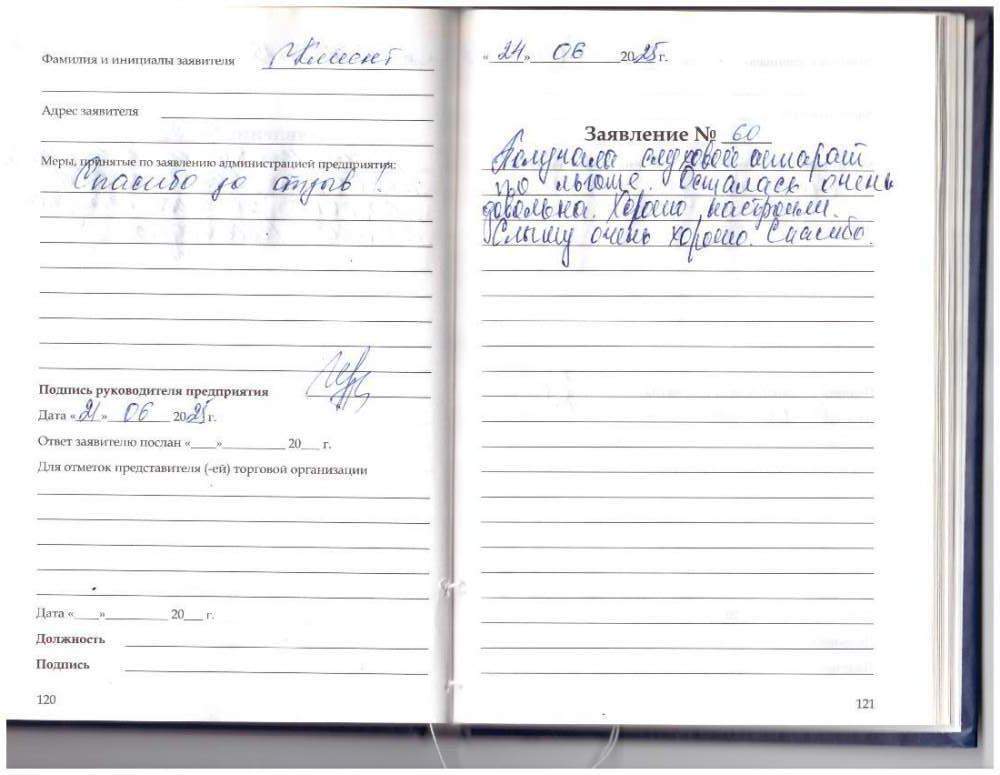 Фамилия и инициалы заявителя Клиент
Адрес заявителя
Меры, принятые по заявлению администрацией предприятия:
Спасибо за отзыв!
Подпись руководителя предприятия
Дата «21» 06 2025 г.
Ответ заявителю послан «___»__________ 20___ г.
Для отметок представителя (-ей) торговой организации
Дата «____»__________ 20___ г.
Должность
Подпись
120
«21» 06 2025 г.
Заявление № 60
Получала слуховой аппарат
по льготе. Осталась очень
довольна. Хорошо настроили.
Слышу очень хорошо. Спасибо.
121